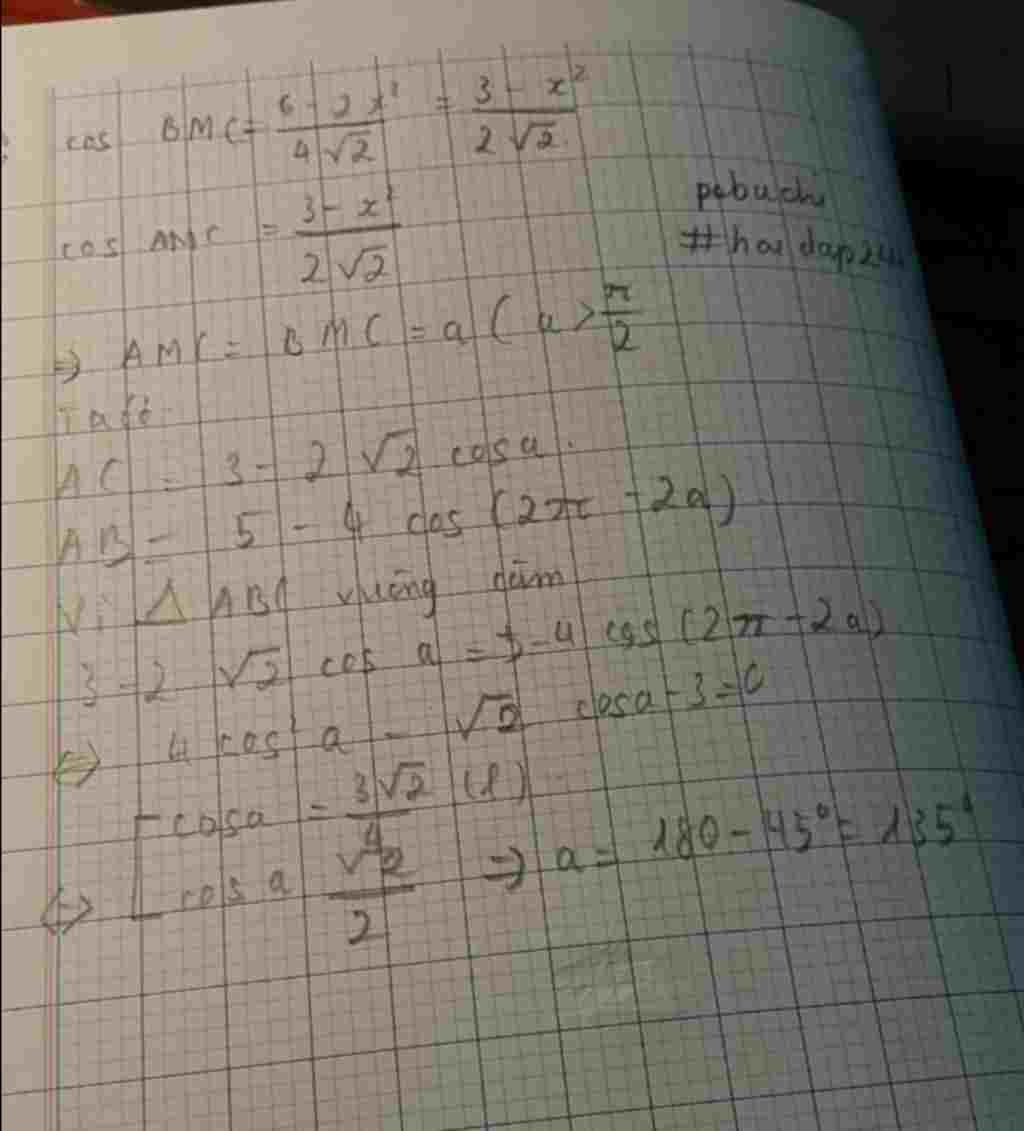 cos BMC = \frac{6 - 2x^2}{4\sqrt{2}} = \frac{3 - x^2}{2\sqrt{2}}
cos AMC = \frac{3 - x^2}{2\sqrt{2}}
pebuchi
#hoidap247
⇒ AMC = BMC = a ( a > \frac{π}{2}
Ta có
AC = 3 - 2\sqrt{2} cos a.
AB = 5 - 4 cos (2π - 2a)
Vì △ ABC vuông
3 - 2\sqrt{2} cos a = 5 - 4 cos (2π - 2a)
⇔ 4 cos^2 a - \sqrt{2} cos a - 3 = 0
⇔ [ cos a = \frac{3\sqrt{2}}{4} (l)
cos a \frac{\sqrt{2}}{2} ⇒ a = 180 - 45° = 135°